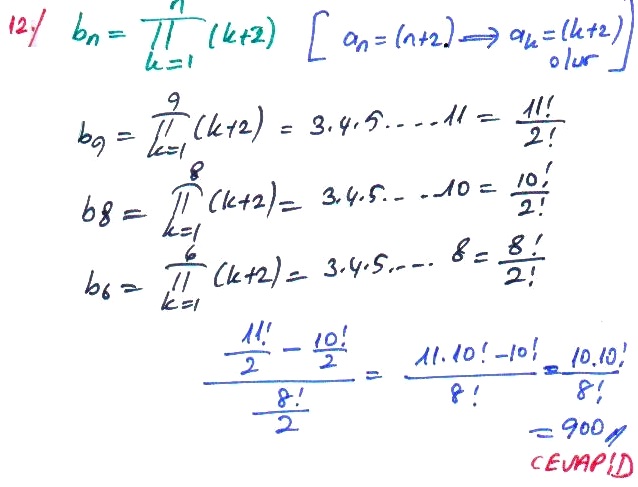 12./ bₙ = ∏ₖ₌₁ⁿ (k+2) [ aₙ = (n+2) ⟶ aₖ = (k+2) olur ]
b₉ = ∏ₖ₌₁⁹ (k+2) = 3.4.5.....11 = 11!/2!
b8 = ∏ₖ₌₁⁸ (k+2) = 3.4.5.....10 = 10!/2!
b₆ = ∏ₖ₌₁⁶ (k+2) = 3.4.5..... 8 = 8!/2!
(11!/2 - 10!/2)/(8!/2) = (11.10! - 10!)/8! = 10.10!/8!
= 900//
CEVAP!D